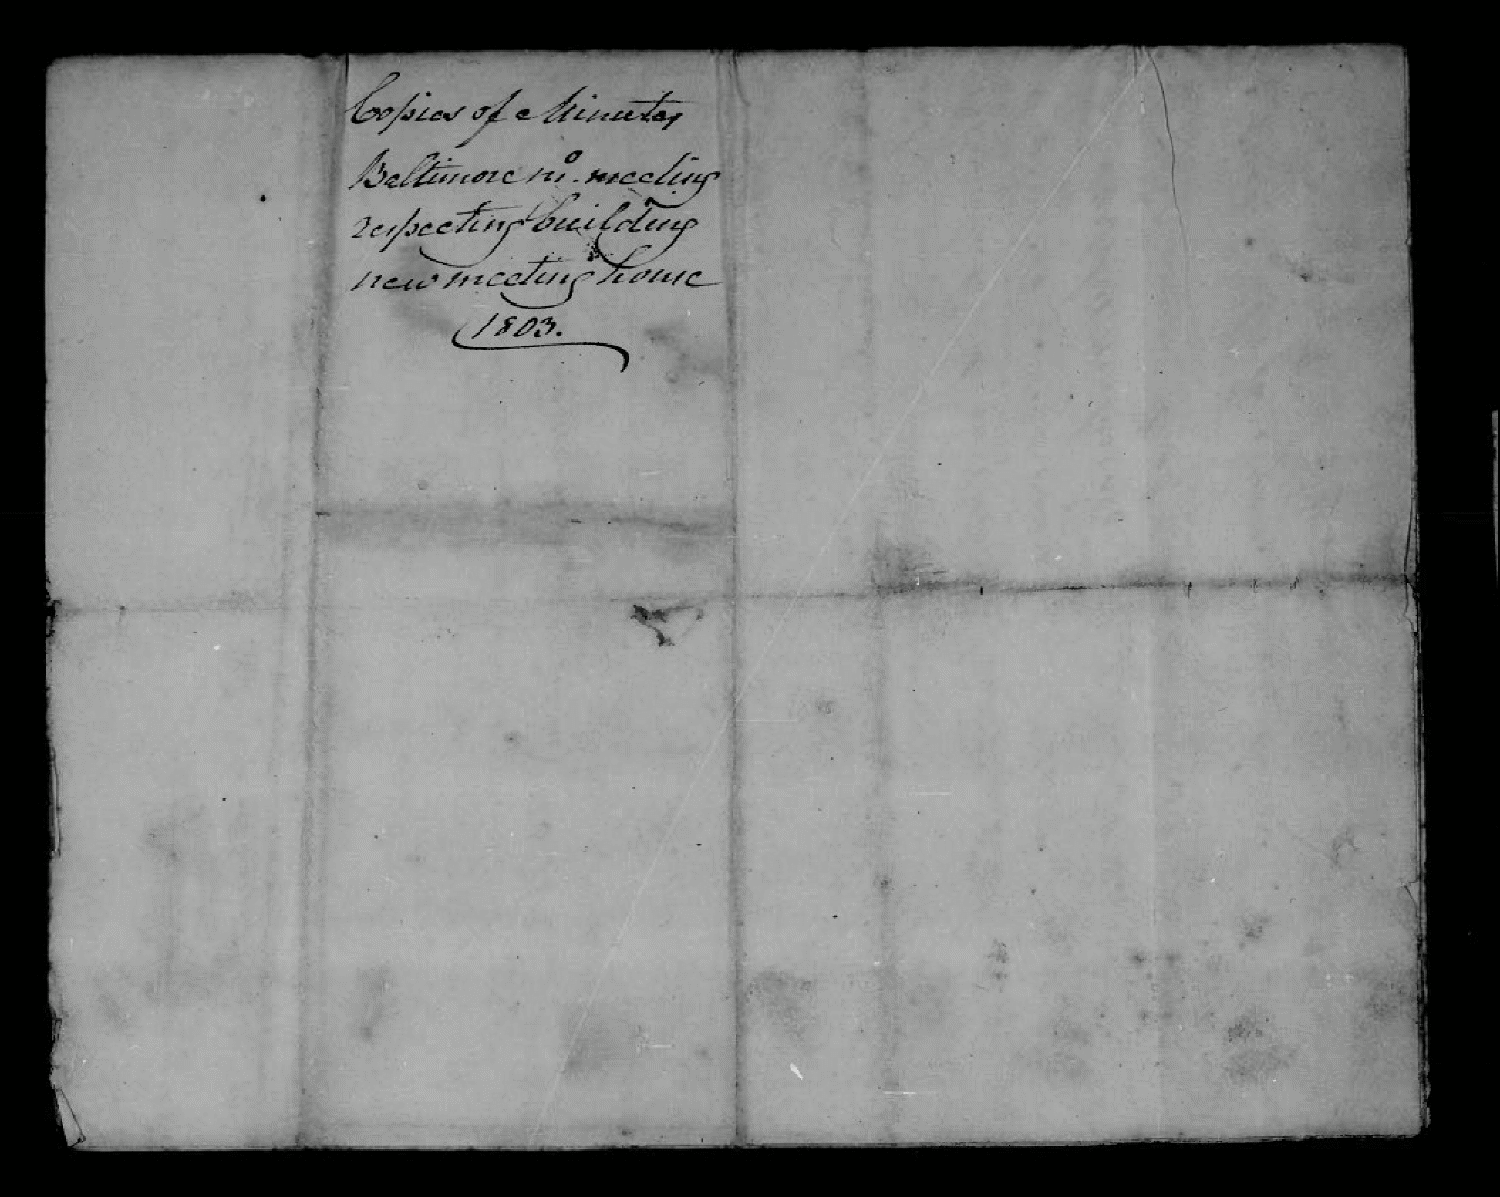 Copies of Minutes
Baltimore mo. meeting
respecting building
new meeting house
1803.